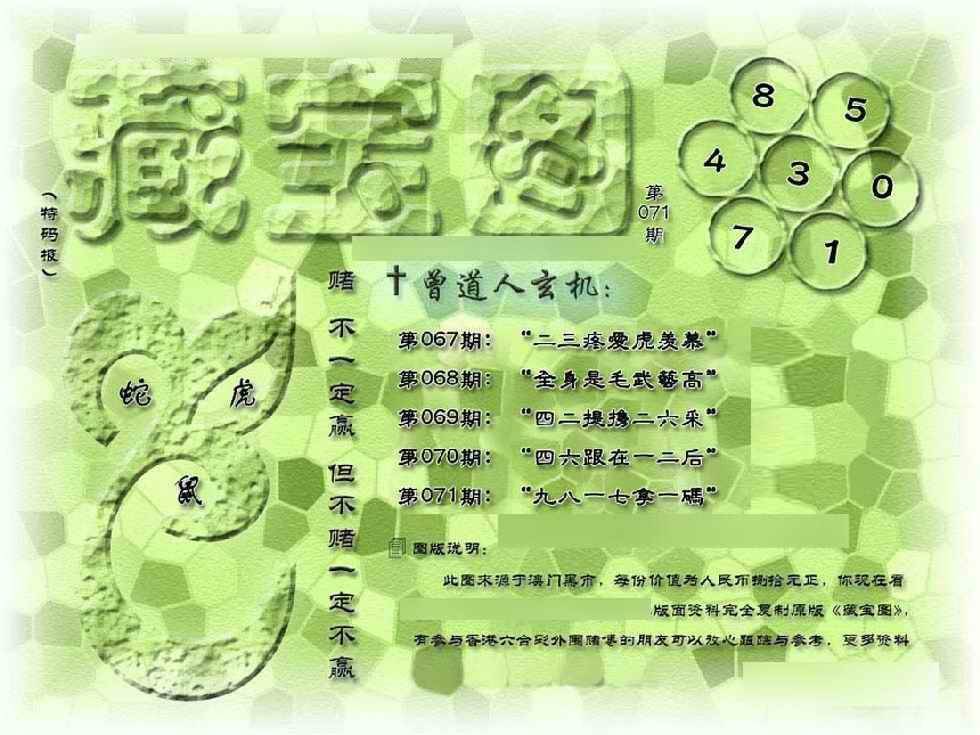 藏宝图
(特码报)
第
071
期
8
5
4
3
0
7
1
蛇
虎
鼠
赌不一定赢但不赌一定不赢
十曾道人玄机:
第067期: “二三疼愛虎羡慕”
第068期: “全身是毛武藝高”
第069期: “四二提携二六采”
第070期: “四六跟在一二后”
第071期: “九八一七拿一碼”
图版说明:
此图来源于澳门黑市,每份价值为人民币捌拾元正,你现在看
版面资料完全复制原版《藏宝图》,
有参与香港六合彩外围赌博的朋友可以放心跟踪与参考,更多资料